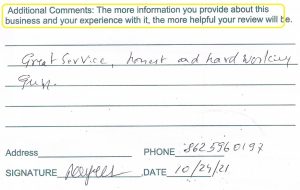 Additional Comments: The more information you provide about this
business and your experience with it, the more helpful your review will be.
Great Service, honest and hard working
guys.
Address PHONE 8625960197
SIGNATURE DATE 10/29/21